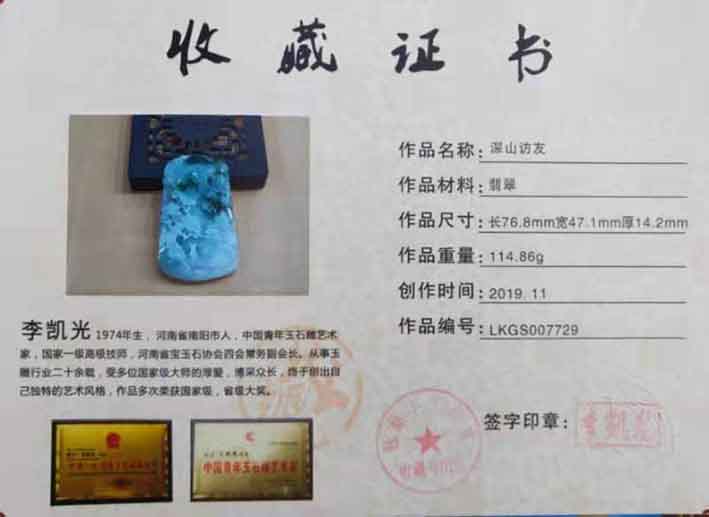 收藏证书
作品名称：深山访友
作品材料：翡翠
作品尺寸：长76.8mm宽47.1mm厚14.2mm
作品重量：114.86g
创作时间：2019.11
作品编号：LKGS007729
李凯光 1974年生，河南省南阳市人，中国青年玉石雕艺术
家，国家一级高级技师，河南省宝玉石协会四会常务副会长。从事玉
雕行业二十余载，受多位国家级大师的厚爱，博采众长，终于创出自
己独特的艺术风格，作品多次荣获国家级，省级大奖。
中国青年玉石雕艺术家
签字印章：李凯光